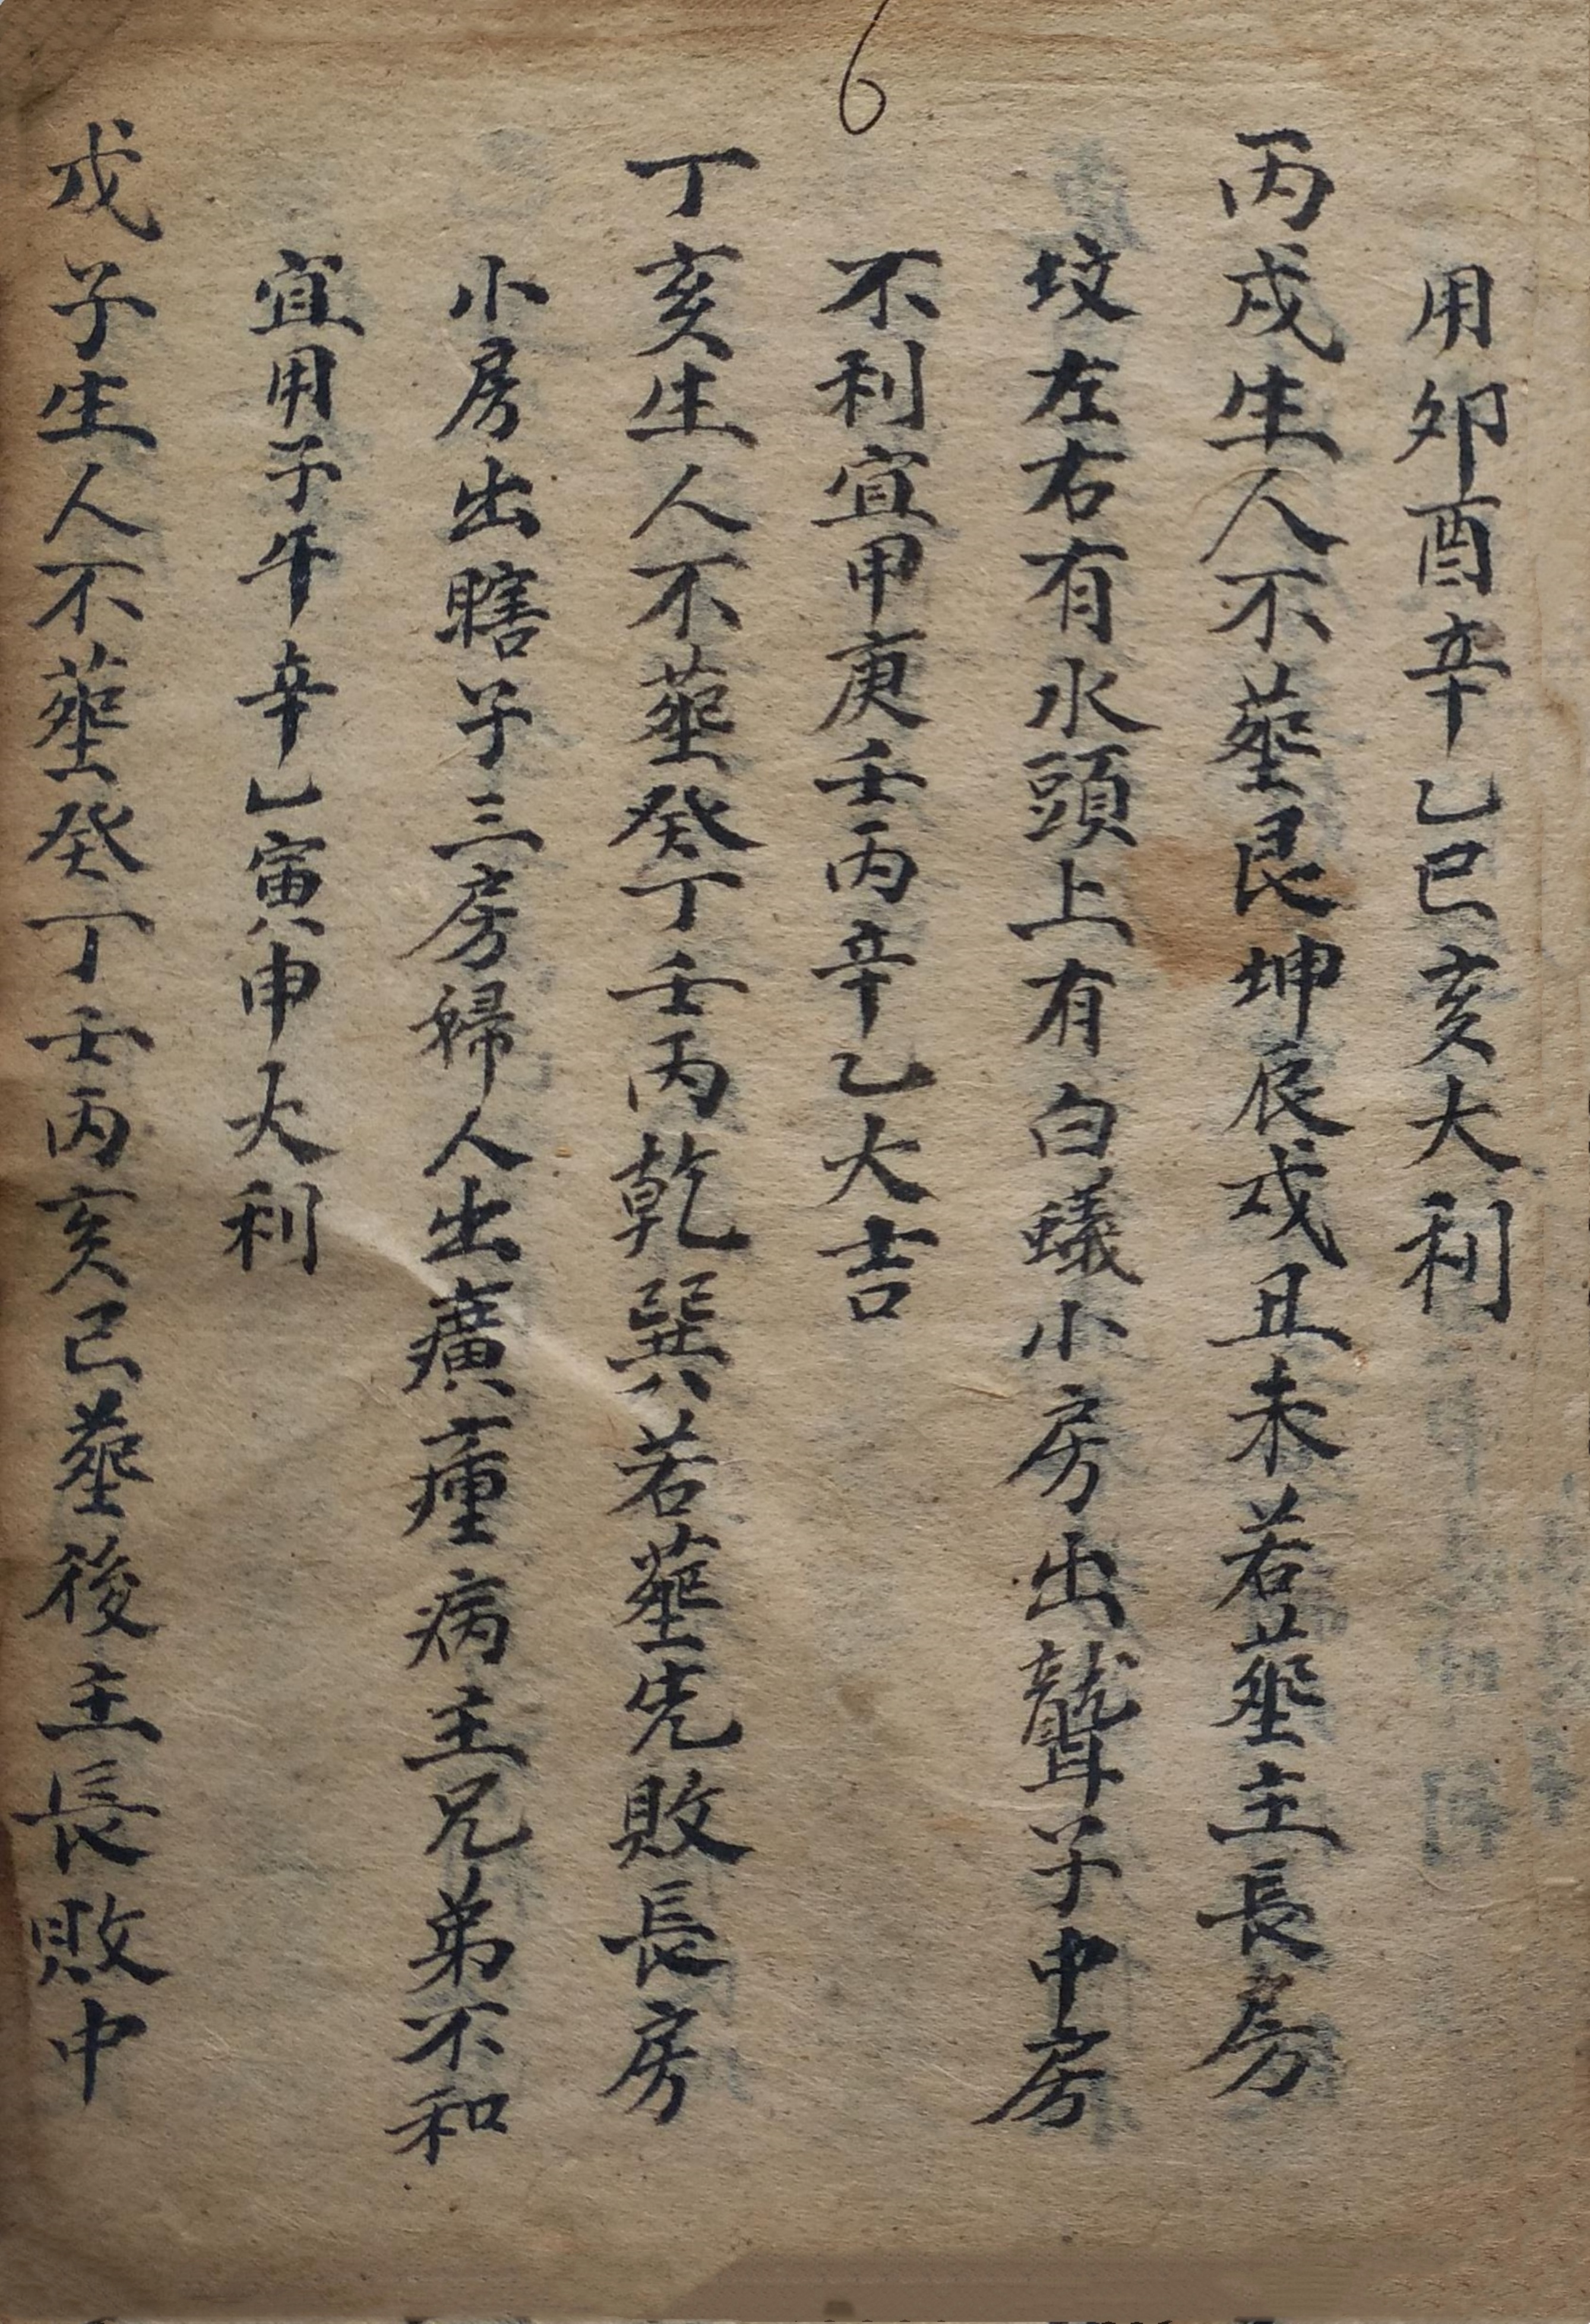 6
用卯酉辛乙巳亥大利
丙戌生人不塟艮坤辰戌丑未若塟主長房
坟左右有水頭上有白蟻小房出聾子中房
不利宜甲庚壬丙辛乙大吉
丁亥生人不塟癸丁壬丙乾巽若塟先敗長房
小房出瞎子三房婦人出癀瘇病主兄弟不和
宜用子午辛乙寅申大利
戊子生人不塟癸丁壬丙亥巳塟後主長敗中